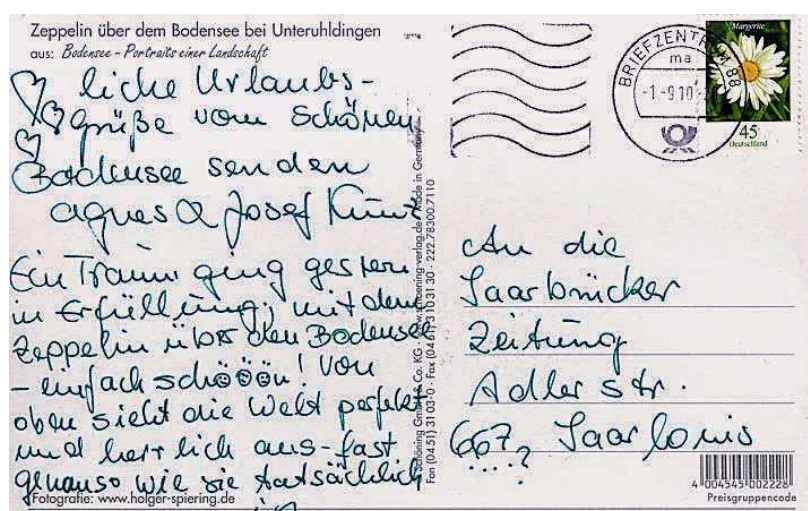 Zeppelin über dem Bodensee bei Unteruhldingen
aus: Bodensee – Portraits einer Landschaft
liche Urlaubs-
grüße vom schönen
Bodensee senden
Agnes & Josef
Ein Traum ging gestern
in Erfüllung; mit dem
Zeppelin über den Bodensee
- einfach schööön! Von
oben sieht die Welt perfekt
und herrlich aus - fast
genauso wie sie tatsächlich
Fotografie: www.holger-spiering.de
Schöning GmbH & Co. KG · www.schoening-verlag.de · Made in Germany
Fon (04 51) 31 03-0 · Fax (04 51) 310 31 30 - 222.78300.7110
BRIEFZENTRUM 88
ma
-1.-9.10
Margerite
45
Deutschland
An die
Saarbrücker
Zeitung
Adlerstr.
667? Saarlouis
4 004545 002228
Preisgruppencode